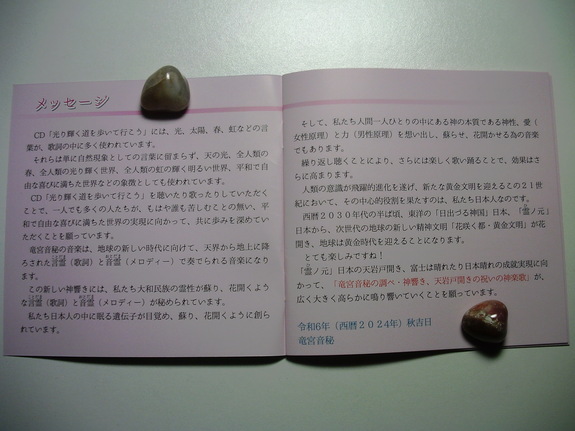 メッセージ
CD「光り輝く道を歩いて行こう」には、光、太陽、春、虹などの言
葉が、歌詞の中に多く使われています。
それらは単に自然現象としての言葉に留まらず、天の光、全人類の
春、全人類の光り輝く世界、全人類の虹の輝く明るい世界、平和で自
由な喜びに満ちた世界などの象徴としても使われています。
CD「光り輝く道を歩いて行こう」を聴いたり歌ったりしていただく
ことで、一人でも多くの人たちが、もはや誰も苦しむことの無い、平
和で自由な喜びに満ちた世界の実現に向かって、共に歩みを深めてい
ただくことを願っています。
竜宮音秘の音楽は、地球の新しい時代に向けて、天界から地上に降
ろされた言霊（歌詞）と音霊（メロディー）で奏でられる音楽になりま
す。
この新しい神響きには、私たち大和民族の霊性が蘇り、花開くよう
な言霊（歌詞）と音霊（メロディー）が秘められています。
私たち日本人の中に眠る遺伝子が目覚め、蘇り、花開くように創ら
れています。
そして、私たち人間一人ひとりの中にある神の本質である神性、愛（
女性原理）と力（男性原理）を想い出し、蘇らせ、花開かせる為の音楽
でもあります。
繰り返し聴くことにより、さらには楽しく歌い踊ることで、効果はさ
らに高まります。
人類の意識が飛躍的進化を遂げ、新たな黄金文明を迎えるこの２１世
紀において、その中心的役割を果たすのは、私たち日本人なのです。
西暦２０３０年代の半ば頃、東洋の「日出づる神国」日本、「霊ノ元」
日本から、次世代の地球の新しい精神文明「花咲く都・黄金文明」が花
開き、地球は黄金時代を迎えることになります。
とても楽しみですね！
「霊ノ元」日本の天岩戸開き、富士は晴れたり日本晴れの成就実現に向
かって、「竜宮音秘の調べ・神響き、天岩戸開きの祝いの神楽歌」が、
広く大きく高らかに鳴り響いていくことを願っています。
令和6年（西暦２０２４年）秋吉日
竜宮音秘